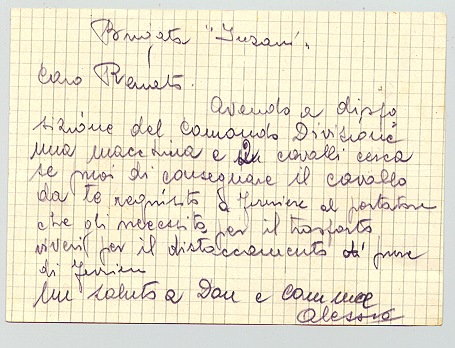 Brigata "Jusani".
Caro Renato.
Avendo a dispo
sizione del Comando Divisione
una macchina e 2 cavalli cerca
se puoi di consegnare il cavallo
da te requisito a Ferriere al portatore
che gli necessita per il trasporto
viveri per il distaccamento di pure
di Ferriere
Un saluto a Dan e
Alessio